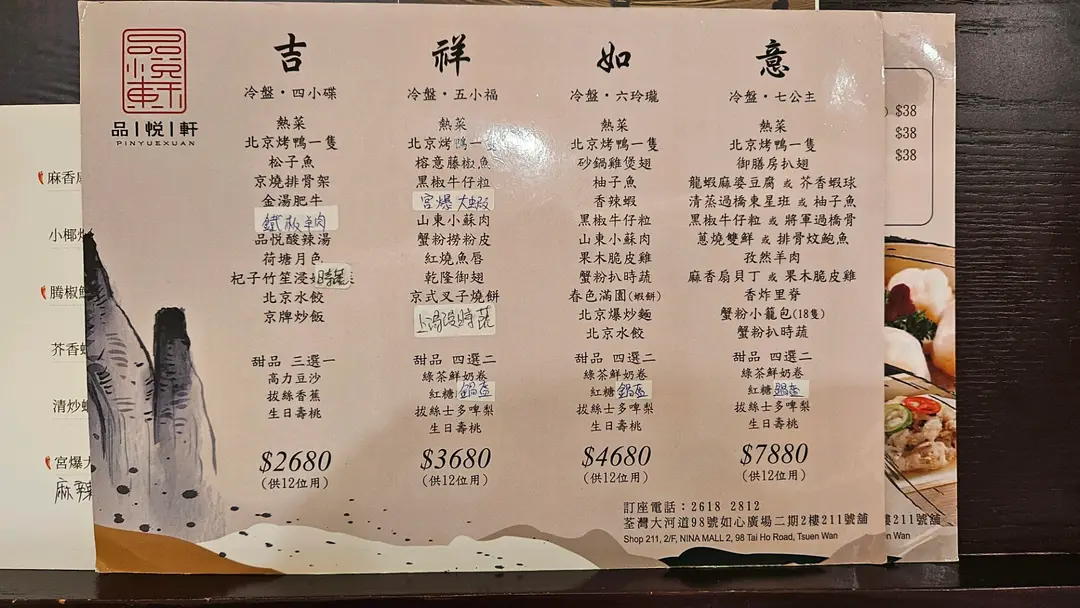 品悅軒
品丨悅丨軒
PINYUEXUAN
吉
冷盤·四小碟
熱菜
北京烤鴨一隻
松子魚
京燒排骨架
金湯肥牛
鐵板羊肉
品悅酸辣湯
荷塘月色
杞子竹笙浸時蔬
北京水餃
京牌炒飯
甜品 三選一
高力豆沙
拔絲香蕉
生日壽桃
$2680
(供12位用)
祥
冷盤·五小福
熱菜
北京烤鴨一隻
榕意藤椒魚
黑椒牛仔粒
宮爆大蝦
山東小蘇肉
蟹粉撈粉皮
紅燒魚唇
乾隆御翅
京式叉子燒餅
上湯浸時蔬
甜品 四選二
綠茶鮮奶卷
紅糖鍋盔
拔絲士多啤梨
生日壽桃
$3680
(供12位用)
如
冷盤·六玲瓏
熱菜
北京烤鴨一隻
砂鍋雞煲翅
柚子魚
香辣蝦
黑椒牛仔粒
山東小蘇肉
果木脆皮雞
蟹粉扒時蔬
春色滿園(蝦餅)
北京爆炒麵
北京水餃
甜品 四選二
綠茶鮮奶卷
紅糖鍋盔
拔絲士多啤梨
生日壽桃
$4680
(供12位用)
意
冷盤·七公主
熱菜
北京烤鴨一隻
御膳房扒翅
龍蝦麻婆豆腐 或 芥香蝦球
清蒸過橋東星班 或 柚子魚
黑椒牛仔粒 或 將軍過橋骨
蔥燒雙鮮 或 排骨炆鮑魚
孜然羊肉
麻香扇貝丁 或 果木脆皮雞
香炸里脊
蟹粉小籠包(18隻)
蟹粉扒時蔬
甜品 四選二
綠茶鮮奶卷
紅糖鍋盔
拔絲士多啤梨
生日壽桃
$7880
(供12位用)
訂座電話:2618 2812
荃灣大河道98號如心廣場二期2樓211號舖
Shop 211, 2/F, NINA MALL 2, 98 Tai Ho Road, Tsuen Wan
麻香
小椰
腾椒
芥香
清炒
宮爆
麻辣
$38
$38
$38
211號舖
en Wan